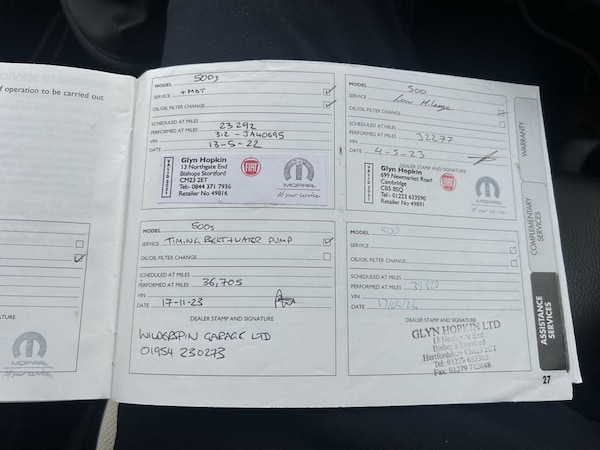 of operation to be carried out
MODEL 500s
SERVICE + MOT
OIL/OIL FILTER CHANGE
SCHEDULED AT MILES 23292
PERFORMED AT MILES 312 - JA40695
VIN
DATE 13-5-22
Glyn Hopkin
13 Northgate End
Bishops Stortford
CM23 2ET
Tel:- 0844 371 7936
Retailer No 49816
FIAT
MOPAR
at your service
MODEL 500
SERVICE Low Mileage
OIL/OIL FILTER CHANGE
SCHEDULED AT MILES
PERFORMED AT MILES 32277
VIN
DATE 4-5-23
DEALER STAMP AND SIGNATURE
Glyn Hopkin
699 Newmarket Road
Cambridge
CB5 8SQ
Tel:- 01223 633590
Retailer No 49891
FIAT
MOPAR
at your service
MODEL 500s
SERVICE TIMING BELT + WATER PUMP
OIL/OIL FILTER CHANGE
SCHEDULED AT MILES
PERFORMED AT MILES 36,705
VIN
DATE 17-11-23
DEALER STAMP AND SIGNATURE
GARAGE LTD
01954 230273
MODEL 500
SERVICE
OIL/OIL FILTER CHANGE
SCHEDULED AT MILES
PERFORMED AT MILES
VIN
DATE
DEALER STAMP AND SIGNATURE
GLYN HOPKIN LTD
13 Northgate End
Bishop's Stortford
Hertfordshire CM23 2ET
WARRANTY
COMPLEMENTARY
SERVICES
ASSISTANCE
SERVICES
27
MOPAR
at your service